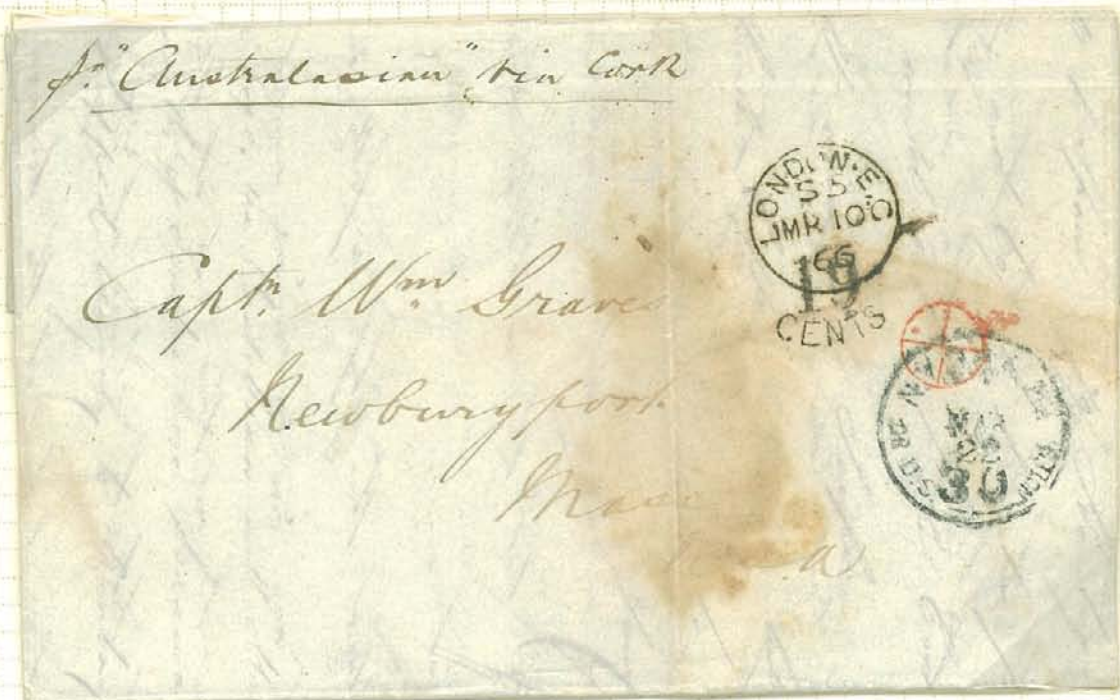 pr "Australasian" via Cork
LONDON·E.C
S5
MR 10
66
19
CENTS
Captn. Wm Graves
Newburyport
Mass
MAR
30